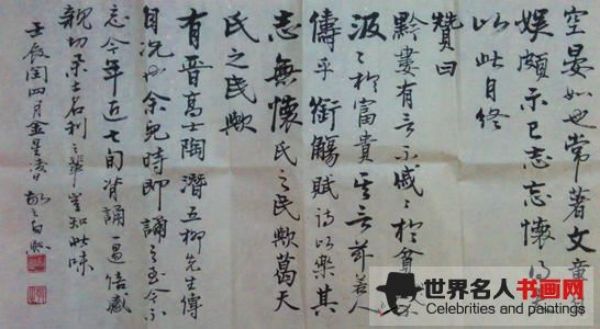 空晏如也常著文章
娱頗示己志忘懷得
以此自終
贊曰
黔婁有言不戚〻於貧
汲〻於富貴其言茲若人
儔乎銜觴賦詩以樂其
志無懷氏之民歟葛天
氏之民歟
有晉高士陶潛五柳先生傳
自況也余兒時即誦之至今不
忘今年近七旬背誦一過倍感
親切 士名利之輩豈知此味
壬辰閏四月金星凌日
世界名人书画网
Celebrities and paintings